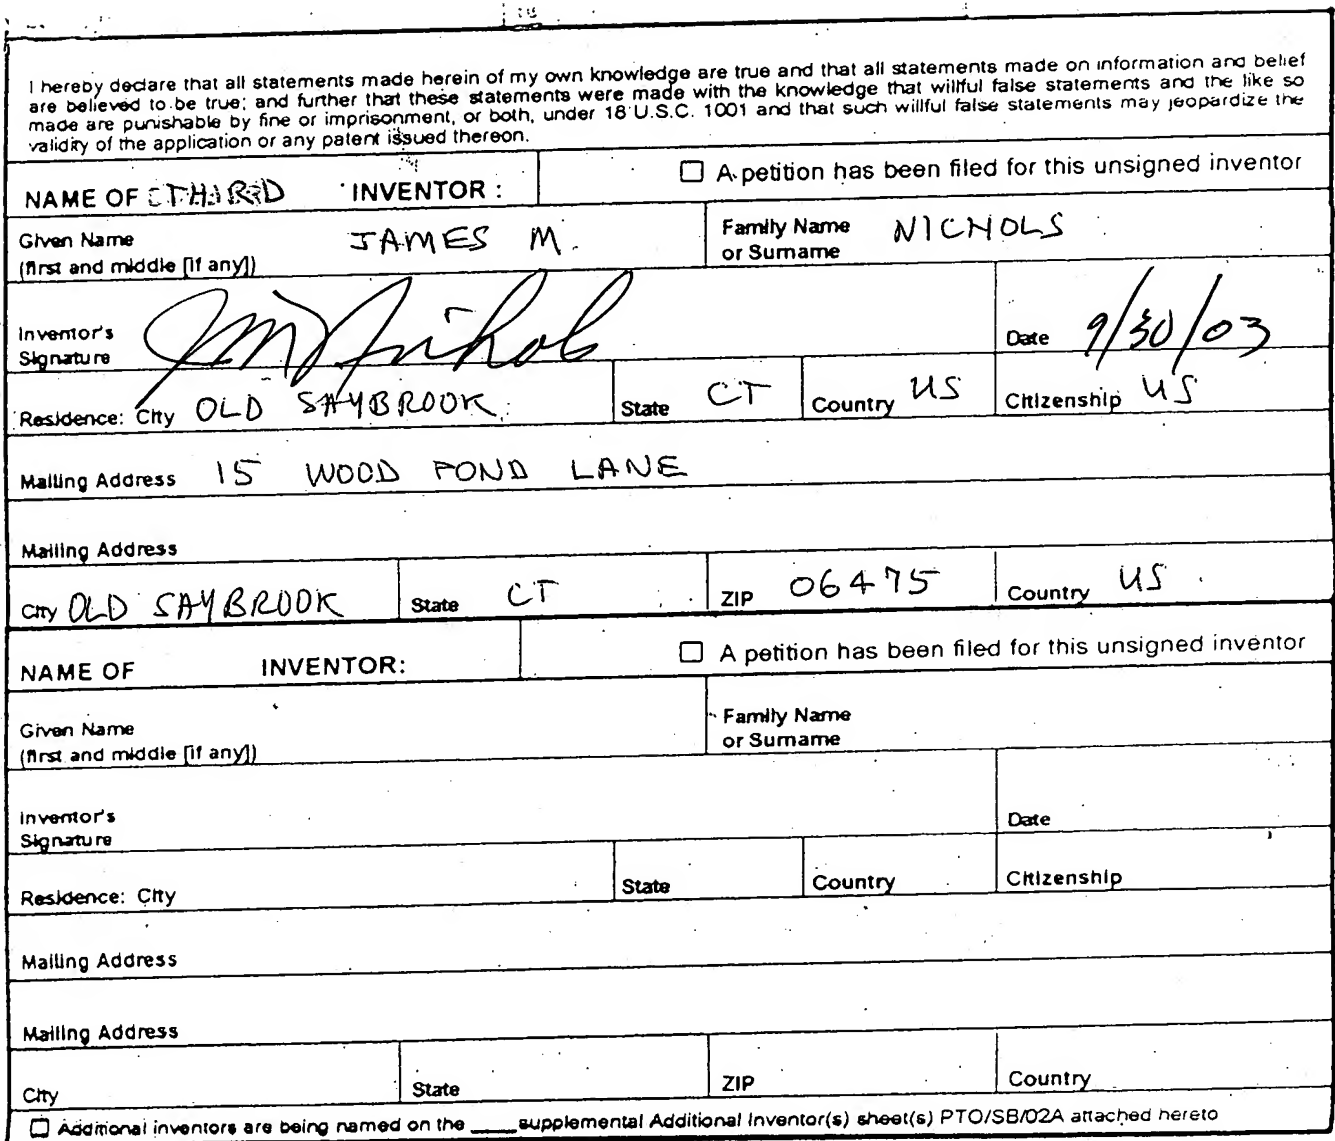 I hereby declare that all statements made herein of my own knowledge are true and that all statements made on information and belief
are believed to be true; and further that these statements were made with the knowledge that willful false statements and the like so
made are punishable by fine or imprisonment, or both, under 18 U.S.C. 1001 and that such willful false statements may jeopardize the
validity of the application or any patent issued thereon.
NAME OF THIRD INVENTOR :
☐ A petition has been filed for this unsigned inventor
Given Name
(first and middle [if any]) JAMES M.
Family Name
or Surname NICHOLS
Inventor's
Signature J M Nichols
Date 9/30/03
Residence: City OLD SAYBROOK State CT Country US Citizenship US
Mailing Address 15 WOOD POND LANE
Mailing Address
City OLD SAYBROOK State CT ZIP 06475 Country US
NAME OF INVENTOR:
☐ A petition has been filed for this unsigned inventor
Given Name
(first and middle [if any])
Family Name
or Surname
Inventor's
Signature
Date
Residence: City State Country Citizenship
Mailing Address
Mailing Address
City State ZIP Country
☐ Additional inventors are being named on the ____ supplemental Additional Inventor(s) sheet(s) PTO/SB/02A attached hereto